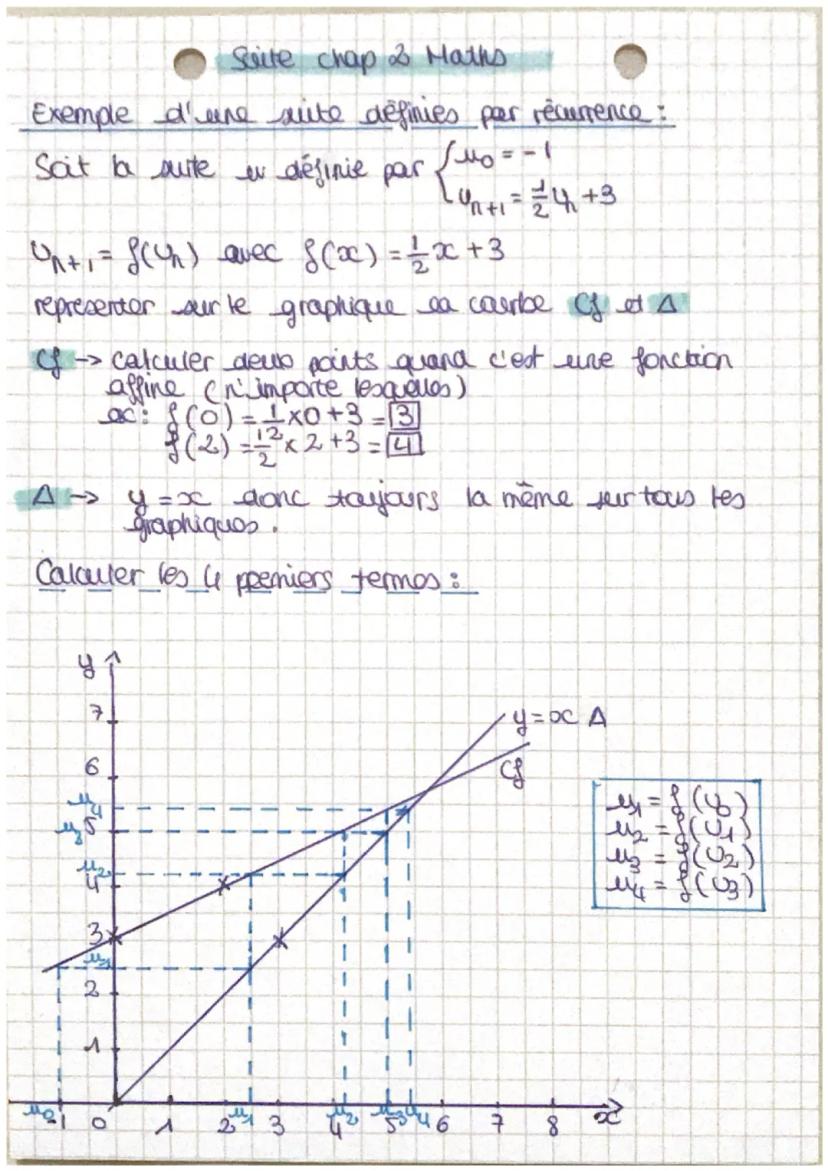 Suite chap 2 Maths
Exemple d'une suite définies par récurrence :
Soit la suite u définie par { u₀ = -1
Uₙ₊₁ = ½ Uₙ + 3
Uₙ₊₁ = f(Uₙ) avec f(x) = ½ x + 3
representer sur le graphique sa courbe Cf et Δ
Cf → calculer deux points quand c'est une fonction
affine (n'importe lesquelles)
ex : f(0) = ½ x 0 + 3 = 3
f(2) = ½ x 2 + 3 = 4
Δ → y = x donc toujours la même sur tous les
graphiques.
Calculer les 4 premiers termes :
y
7
y = x Δ
6
Cf
u₄
u₃ 5
u₂
4
3
u₁
2
1
u₁ = f(U₀)
u₂ = f(U₁)
u₃ = f(U₂)
u₄ = f(U₃)
u₀ -1 0 1 2 u₁ 3 4 u₂ 5 u₃ u₄ 6 7 8 x